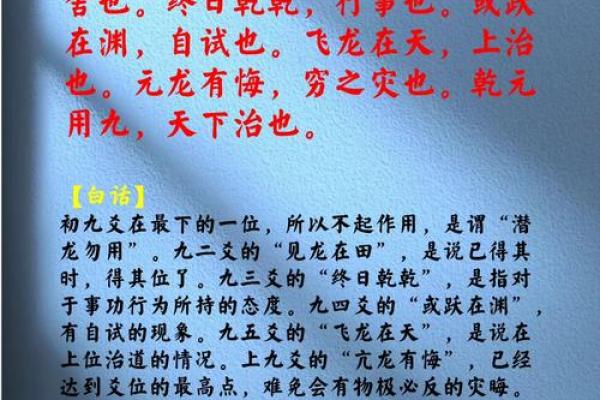 舍也。终日乾乾，行事也。或跃
在渊，自试也。飞龙在天，上治
也。元龙有悔，穷之灾也。乾元
用九，天下治也。
【白话】
初九爻在最下的一位，所以不起作用，是谓“潜
龙勿用”。九二爻的“见龙在田”，是说已得其
时，得其位了。九三爻的“终日乾乾”，是指对
于事功行为所持的态度。九四爻的“或跃在渊”，
有自试的现象。九五爻的“飞龙在天”，是说在
上位治道的情况。上九爻的“亢龙有悔”，已经
达到爻位的最高点，难免会有物极必反的灾晦。